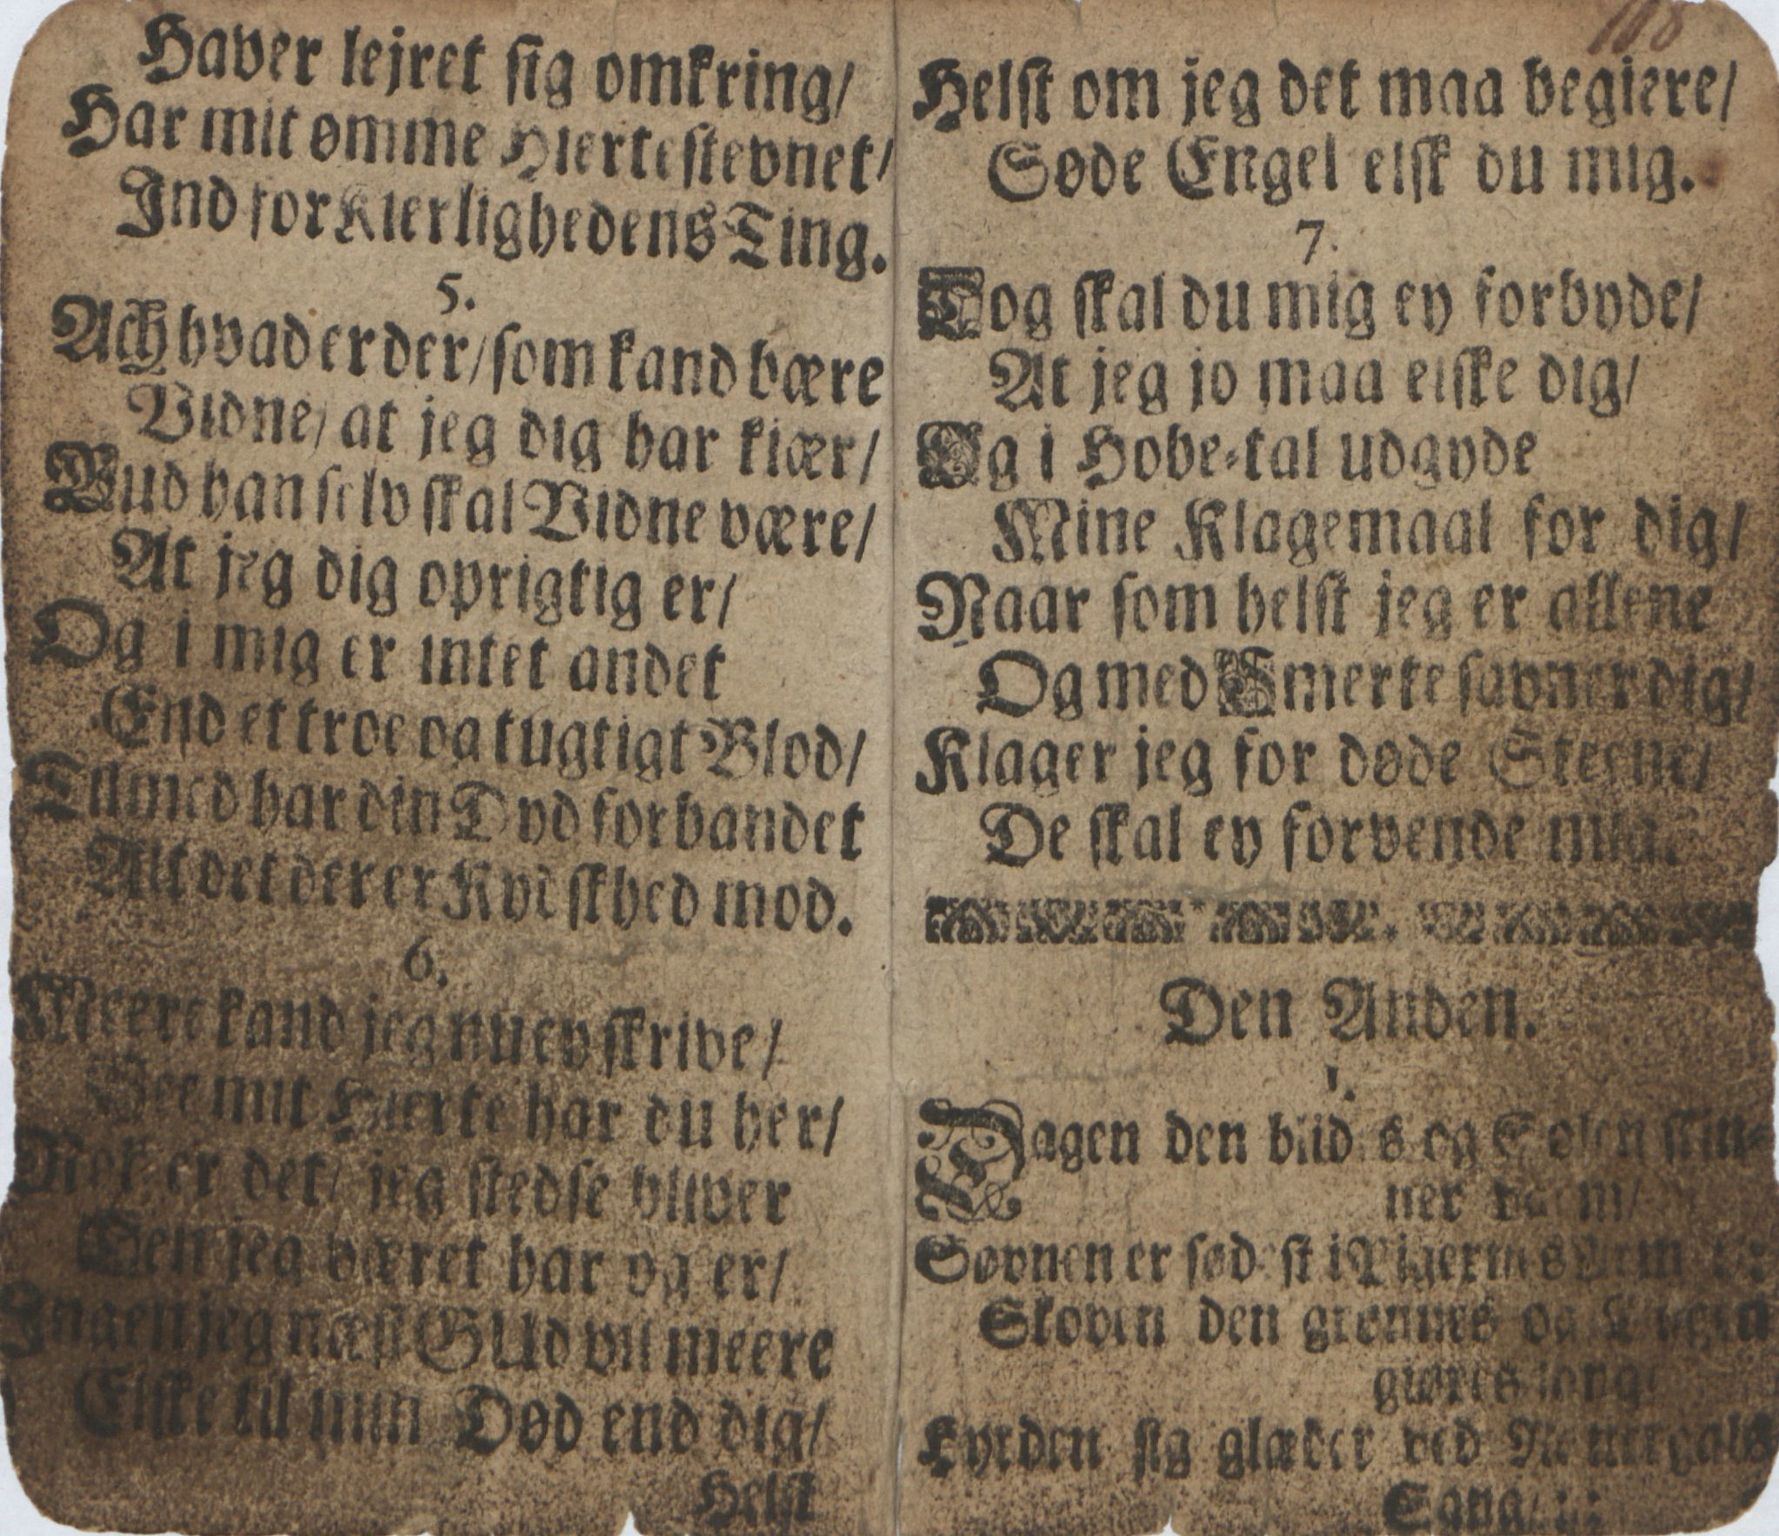 Haver lejret sig omkring/
Har mit ømme Hierte stevnet/
Ind for Kierlighedens Ting.
5.
Ach hvad er der/ som kand bære
Vidne/ at jeg dig har kiær/
Gud han selv skal Vidne være/
At jeg dig oprigtig er/
Og i mig er intet andet
End et troe og tugtigt Blod/
Tilmed har din Dyd forbandet
Alt det der er Kydskhed mod.
6.
Meere kand jeg nu ey skrive/
See mit Hierte har du her/
Nok er det/ jeg stedse bliver
Den jeg været har og er/
Ingen jeg næst GUd vil meere
Elske til min Død end dig/
Helst
118
Helst om jeg det maa begiere/
Søde Engel elsk du mig.
7.
Dog skal du mig ey forbyde/
At jeg jo maa elske dig/
Og i Hobe-tal udgyde
Mine Klagemaal for dig/
Naar som helst jeg er allene
Og med Smerte savner dig/
Klager jeg for døde Steene/
De skal ey forvende mig.
Den Anden.
1.
Dagen den blides og Solen skin-
ner
Søvnen er sødest i
Skoven den grønnes og
giøres
Hyrden sig glæder ved Nattergals
Sang/ :,: